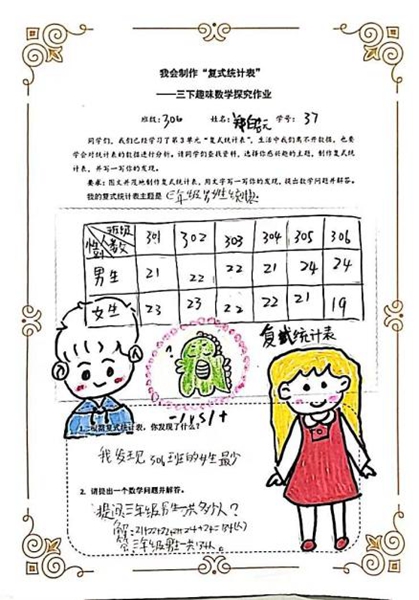 我会制作“复式统计表”
——三下趣味数学探究作业
班级：306 姓名： 学号：37
同学们，我们已经学习了第3单元“复式统计表”，生活中我们离不开数据，也要
学会对统计表的数据进行分析。请同学们查找资料，选择你感兴趣的主题，制作复式统
计表，并写一写你的发现。
要求：图文并茂地制作复式统计表，用文字写一写你的发现，提出数学问题并解答。
我的复式统计表主题是 三年级男女生
性别 人数 班级 301 302 303 304 305 306
男生 21 22 22 21 24 24
女生 23 23 22 22 21 19
复式统计表
1. 观察复式统计表，你发现了什么？
我发现306班的女生最少
2. 请提出一个数学问题并解答。
提问三年级男生一共多少人？
解：21+22+22+21+24+24=
答三年级男生一共